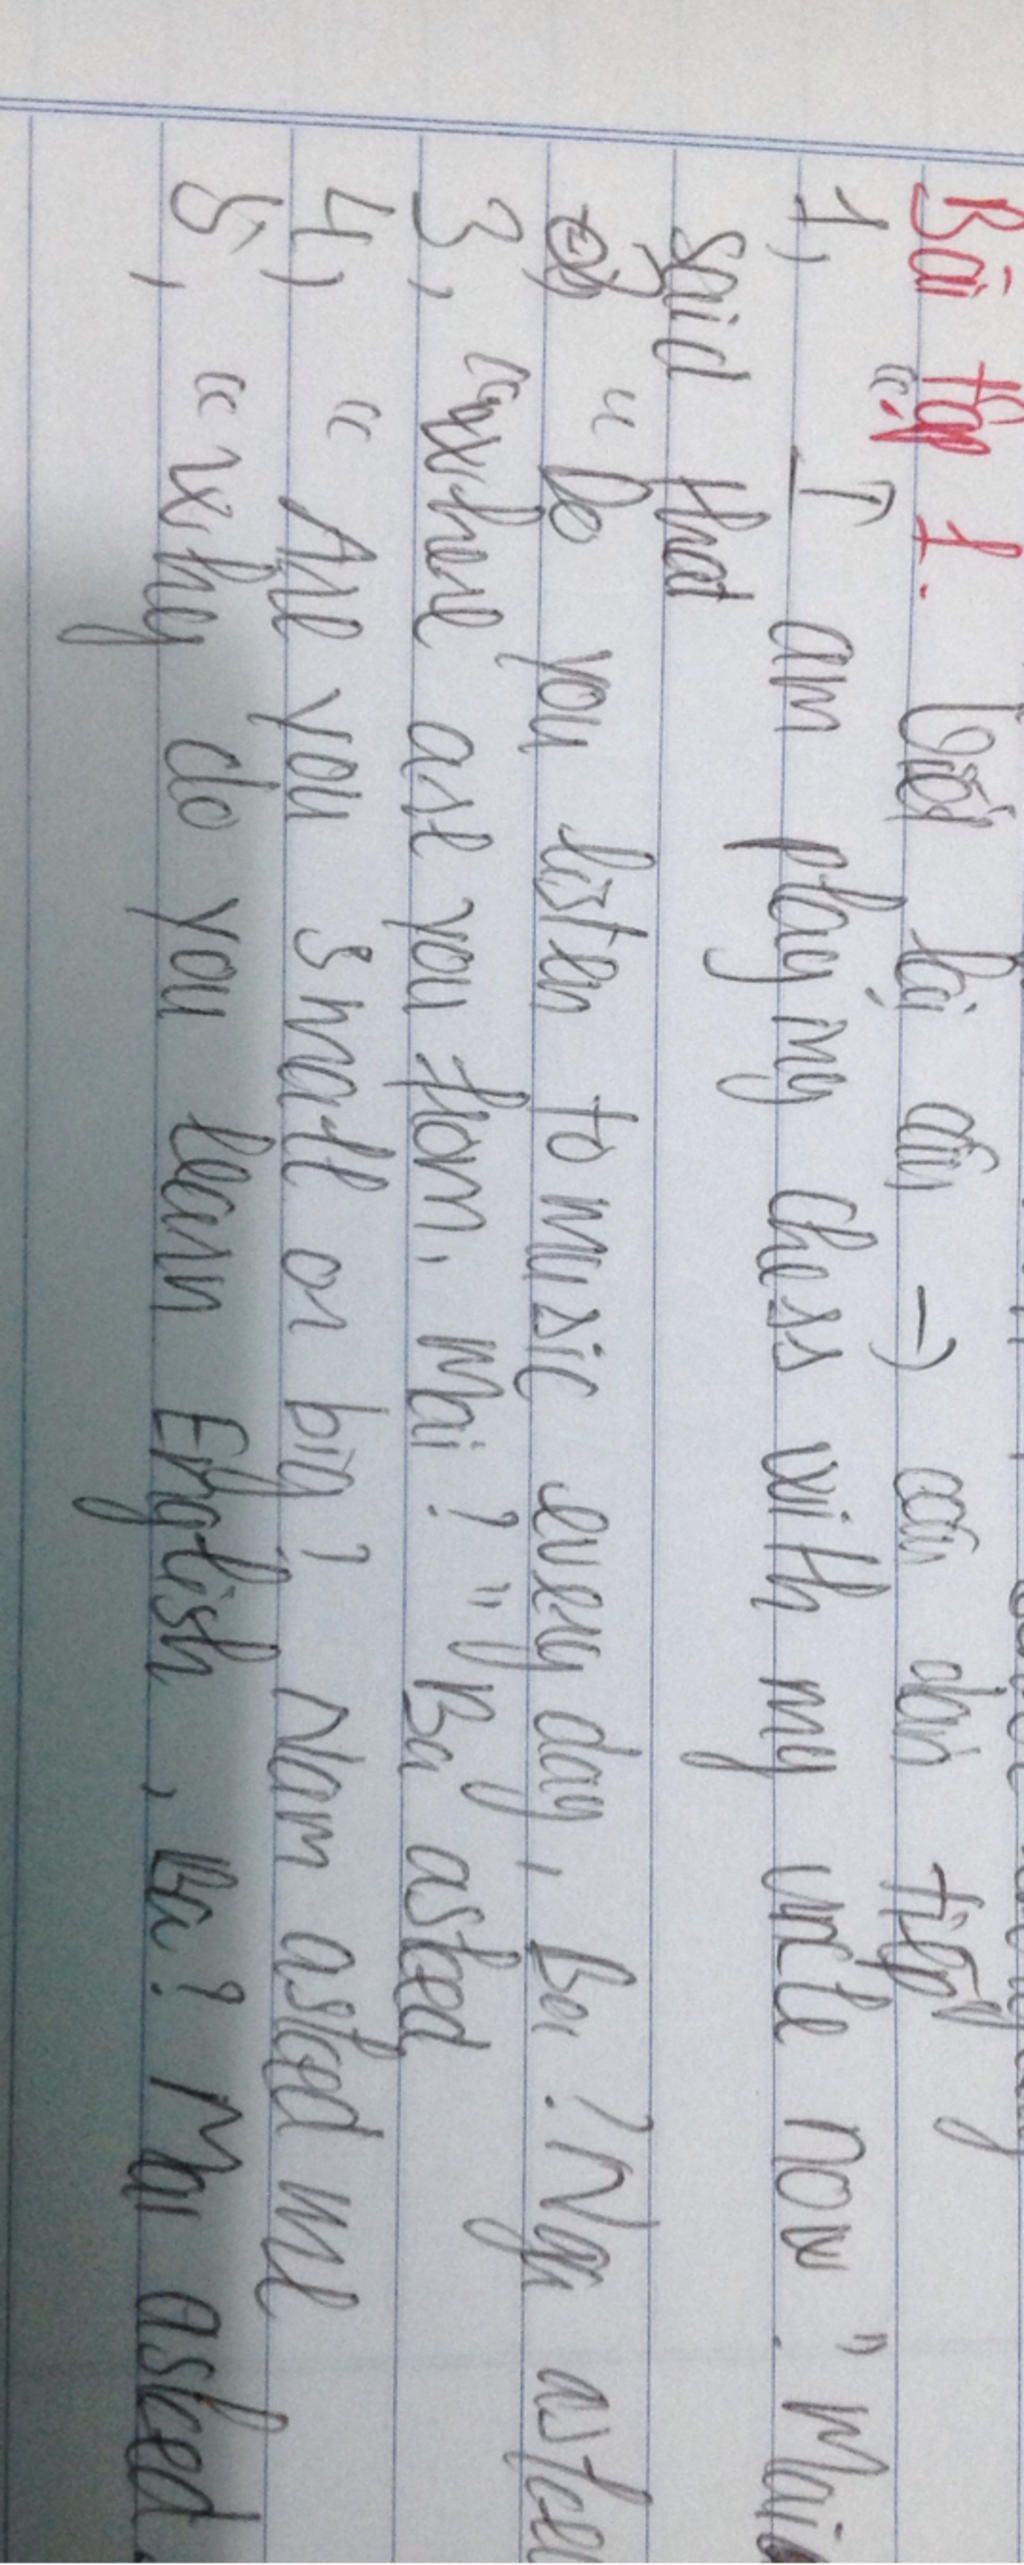 Bài tập 1. Viết lại câu → câu gián tiếp
1, "I am playing chess with my uncle now". Mai
said that
2, "Do you listen to music every day, Ba? Nga asked
3, "Where are you from, Mai?" Ba asked
4, "Are you small or big? Nam asked me
5, "why do you learn English, Ba? Mai asked